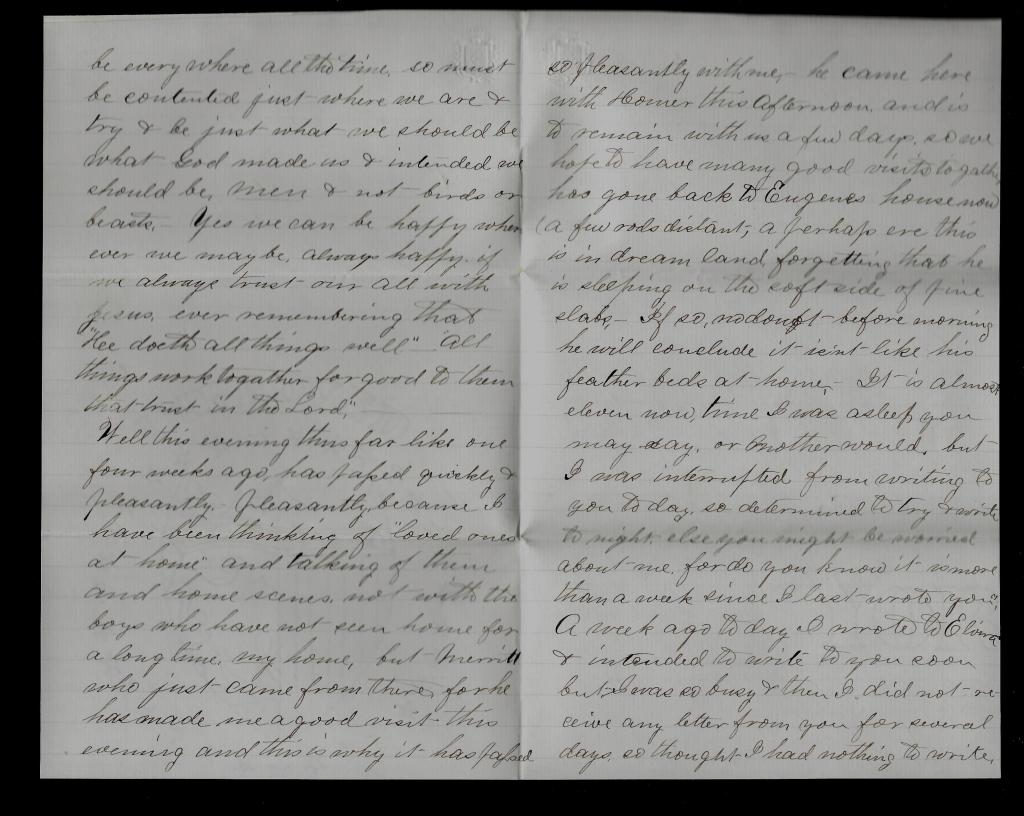 be every where all the time, so must
be contented just where we are &
try & be just what we should be
what God made us & intended we
should be, men & not birds or
beasts. – Yes we can be happy wher
ever we may be, always happy, if
we always trust our all with
Jesus, ever remembering that
"Hee doeth all things well" – All
things work togather for good to them
that trust in the Lord,"
Well this evening thus far like one
four weeks ago, has passed quickly &
pleasantly. – pleasantly, because I
have been thinking of "loved ones
at home" and talking of them
and home scenes, not with the
boys who have not seen home for
a long time, my home, but Merritt
who just came from there, for he
has made me a good visit this
evening and this is why it has passed
so pleasantly with me, – he came here
with Homer this afternoon and is
to remain with us a few days, so we
hope to have many good visits togather
has gone back to Eugenes house now
(a few rods distant, a perhaps ere this
is in dream land, forgetting that he
is sleeping on the soft side of pine
slabs, – If so, no doubt before morning
he will conclude it isint like his
feather beds at home, – It is almost
eleven now, time I was asleep you
may say, or Mother would, but
I was interrupted from writing to
you to day, so determined to try & write
to night, else you might be worried
about me, for do you know it is more
than a week since I last wrote you",
A week ago to day I wrote to Elvira
& intended to write to you soon
but I was so busy & then I did not re-
ceive any letter from you for several
days, so thought I had nothing to write,